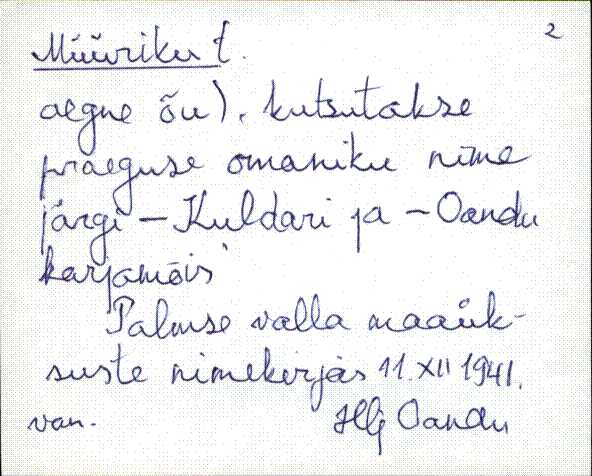 2
Müüriku t.
aegne õu). kutsutakse
praeguse omaniku nime
järgi – Kuldari ja – Oandu
karjamõis
Palmse valla maaük-
suste nimekirjas 11. XII 1941.
van. Hlj Oandu